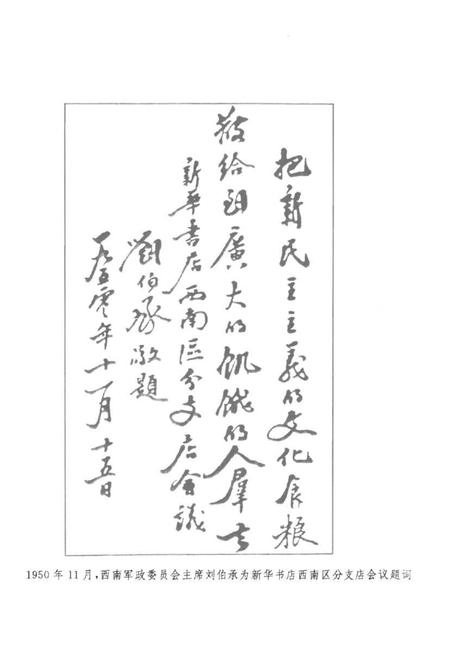 把新民主主义的文化食粮
散给到廣大的飢餓的人羣去
新华書店西南區分支店会議
劉伯承敬題
一九五零年十一月十五日
1950年11月,西南军政委员会主席刘伯承为新华书店西南区分支店会议题词